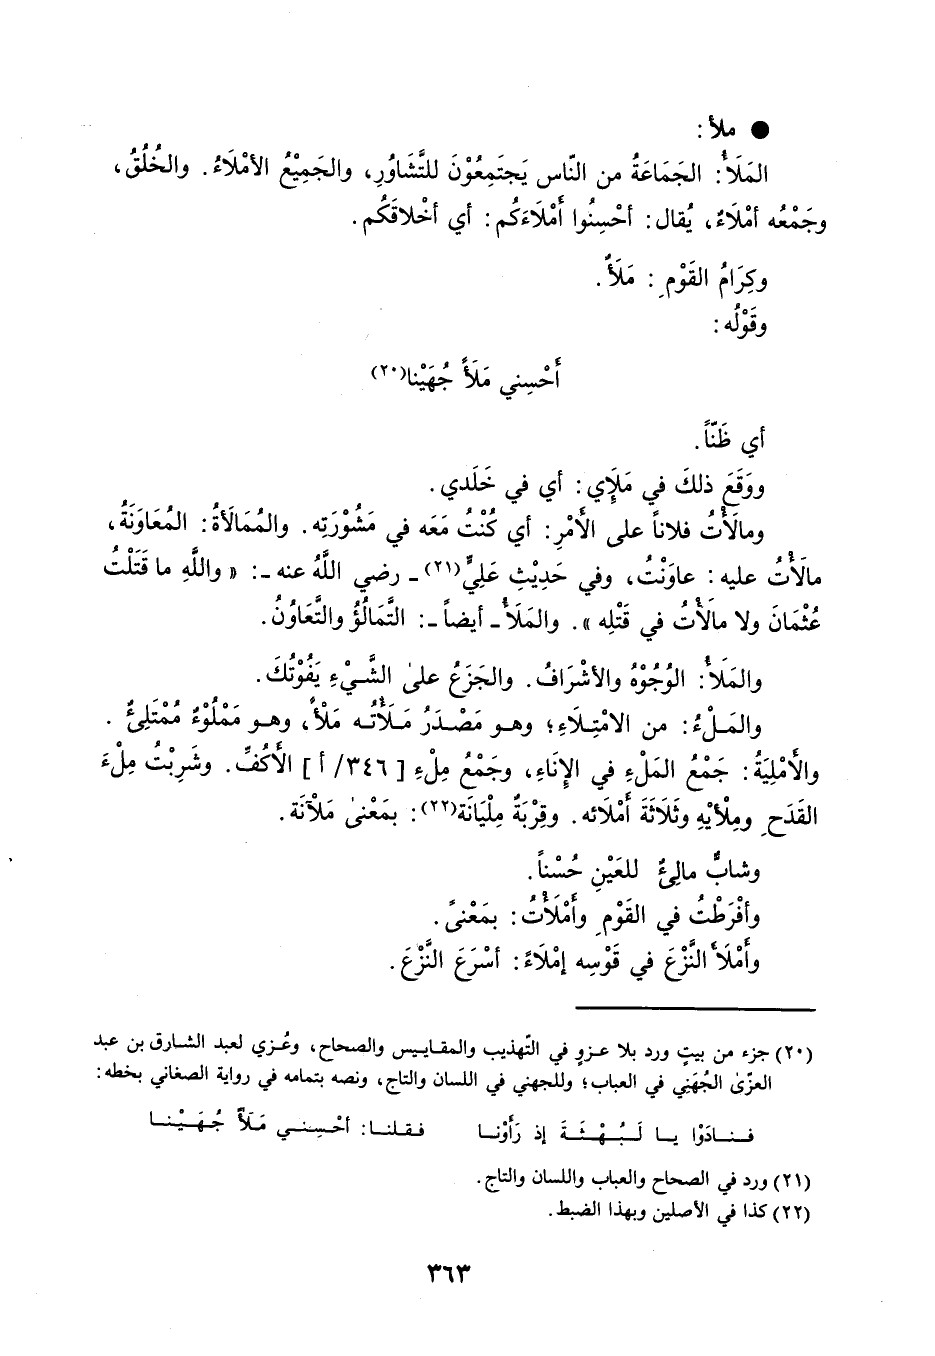 ● ملأ:
المَلَأُ: الجَمَاعَةُ من النّاس يَجتَمِعُوْنَ للتَّشَاوُرِ، والجَمِيْعُ الأمْلَاءُ. والخُلُقُ،
وجَمْعُه أمْلَاءٌ، يُقال: أحْسِنُوا أَمْلَاءَكُم: أي أخْلاقَكُم.
وكِرَامُ القَوْمِ: مَلَأٌ.
وقَوْلُه:
أَحْسِني مَلَأً جُهَيْنا(٢٠)
أي ظَنّاً.
ووَقَعَ ذلكَ في مَلَإي: أي في خَلَدي.
ومالَأْتُ فلاناً على الأَمْرِ: أي كُنْتُ مَعَه في مَشُوْرَتِه. والمُمَالَأةُ: المُعَاوَنَةُ،
مالَأْتُ عليه: عاوَنْتُ، وفي حَدِيْثِ عَلِيٍّ(٢١) ـ رضي اللَّهُ عنه ـ: « واللَّهِ ما قَتَلْتُ
عُثْمَانَ ولا مالَأْتُ في قَتْلِه ». والمَلَأُ ـ أيضاً ـ: التَّمَالُؤُ والتَّعَاوُنُ.
والمَلَأُ: الوُجُوْهُ والأشْرَافُ. والجَزَعُ علىٰ الشَّيْءِ يَفُوْتُكَ.
والمَلْءُ: من الامْتِلَاءِ؛ وهو مَصْدَرُ مَلَأْتُه مَلْأً، وهو مَمْلُوْءٌ مُمْتَلِئٌ.
والأَمْلِيَةُ: جَمْعُ المَلْءِ في الإِنَاءِ، وجَمْعُ مِلْءِ [ ٣٤٦/ أ ] الأَكُفِّ. وشَرِبْتُ مِلْءَ
القَدَحِ ومِلْأيْهِ وثَلَاثَةَ أَمْلَائه. وقِرْبَةٌ مِلْيَانَة(٢٢): بمَعْنىٰ مَلآنَة.
وشابٌّ مالِئٌ للعَيْنِ حُسْناً.
وأفْرَطْتُ في القَوْمِ وأَمْلَأْتُ: بمَعْنىً.
وأَمْلَأَ النَّزْعَ في قَوْسِه إمْلَاءً: أسْرَعَ النَّزْعَ.
(٢٠) جزء من بيتٍ ورد بلا عزوٍ في التّهذيب والمقاييس والصحاح، وعُزي لعبد الشارق بن عبد
العزّىٰ الجُهَنِي في العباب؛ وللجهني في اللسان والتاج، ونصه بتمامه في رواية الصغاني بخطه:
فنادَوْا يا لَبُهْثَةَ إذ رَأَوْنا فقلنا: أحْسِني مَلَأً جُهَيْنا
(٢١) ورد في الصحاح والعباب واللسان والتاج.
(٢٢) كذا في الأصلين وبهذا الضبط.
٣٦٣